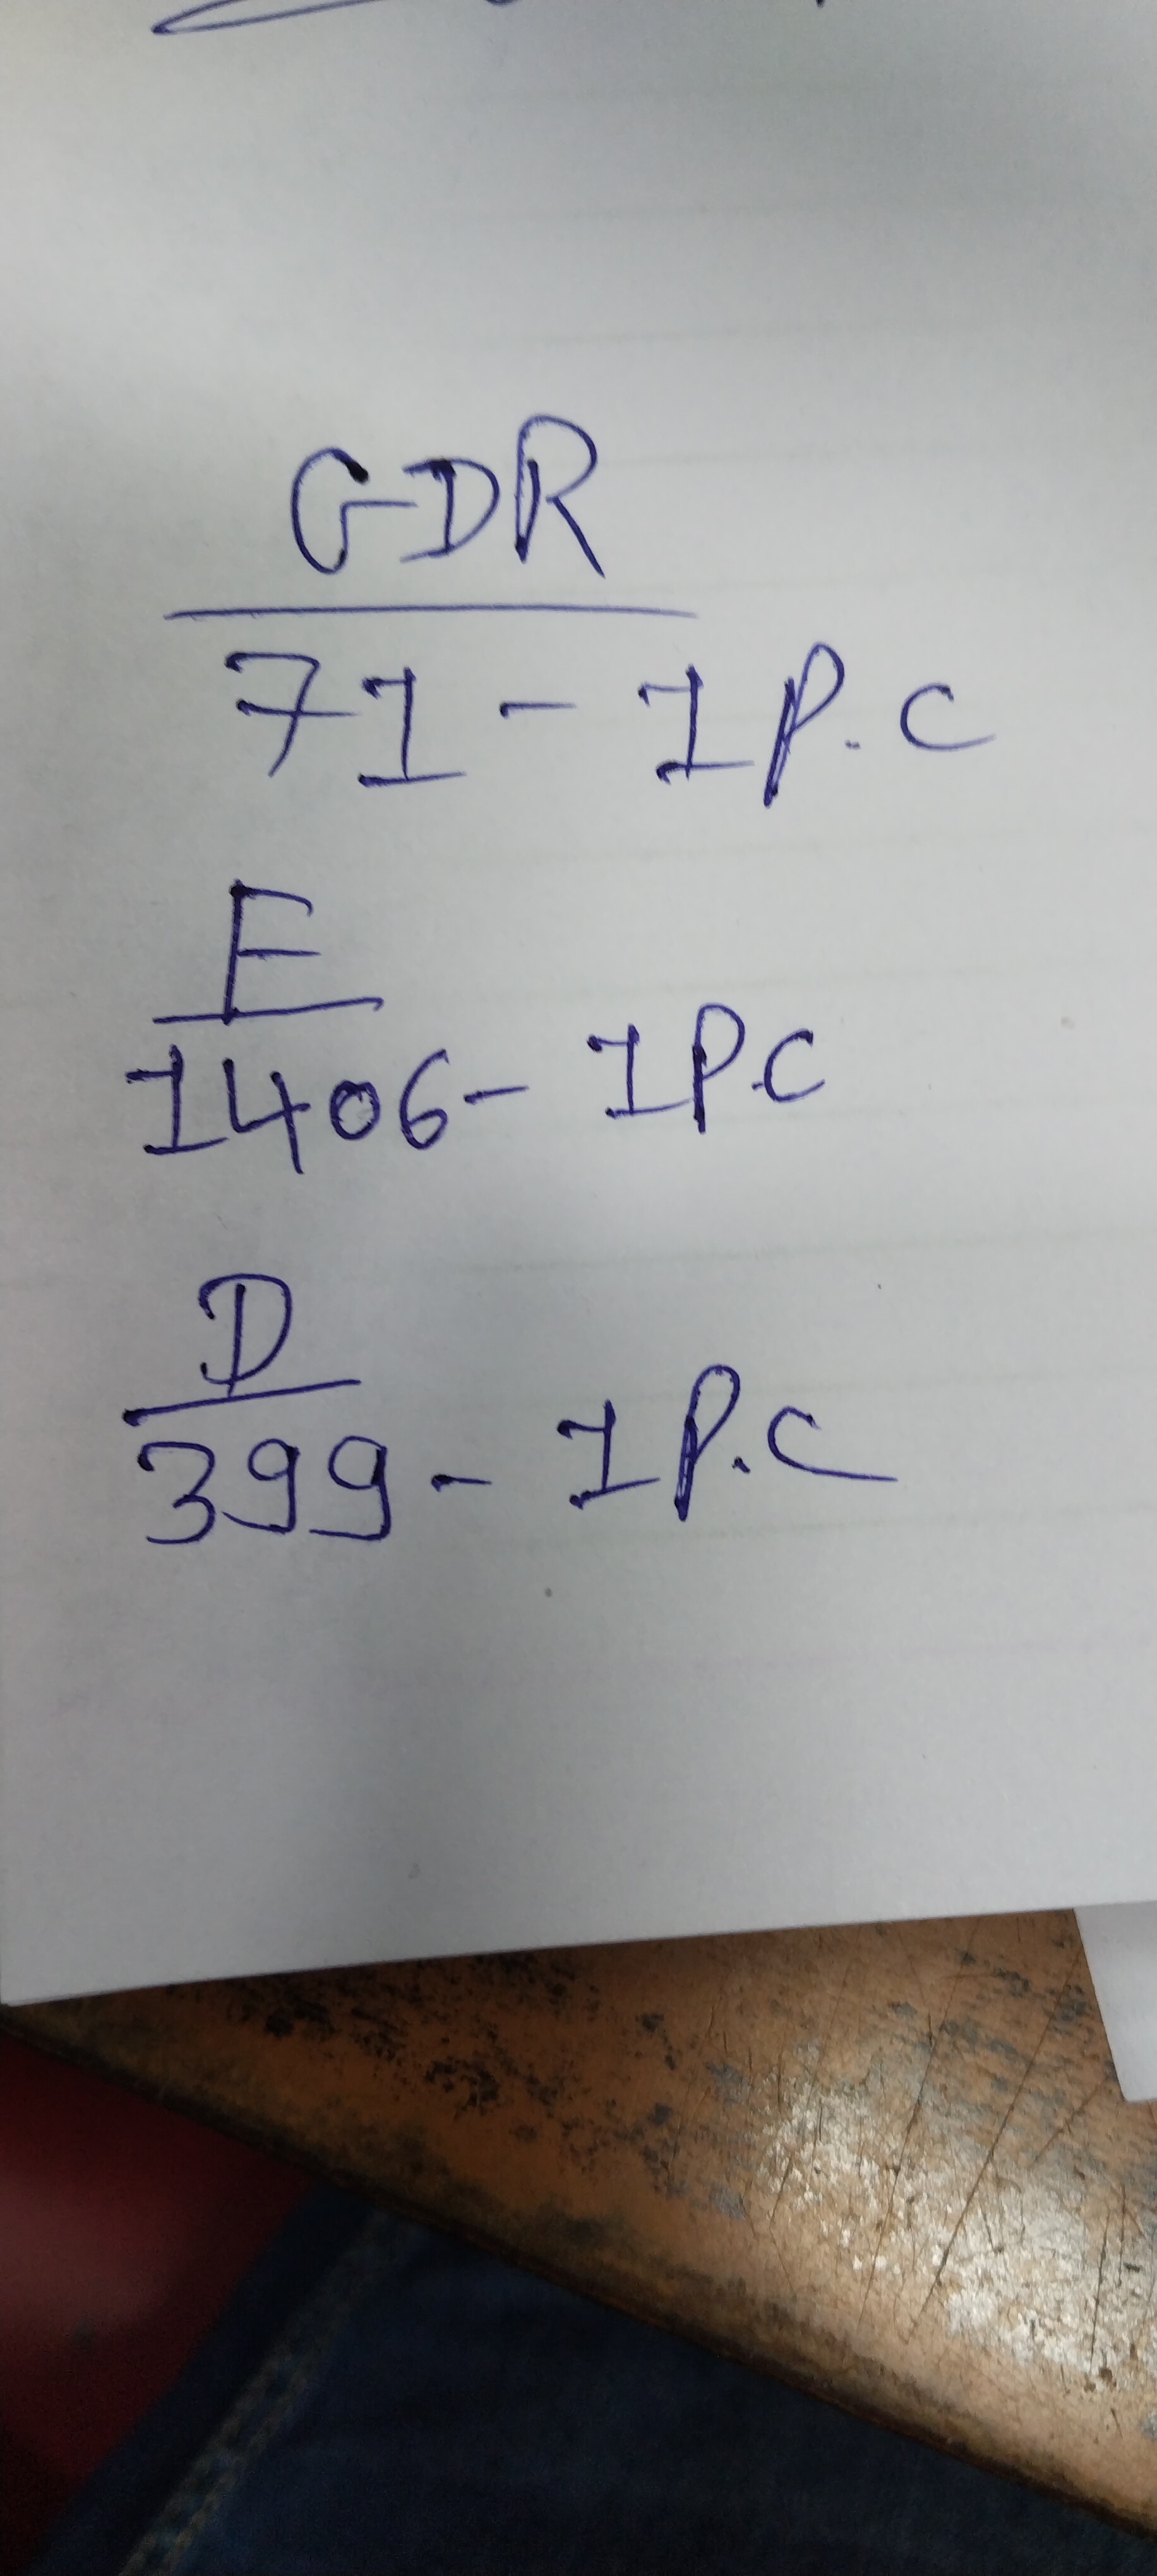 GDR
71 - 1 P.C
E
1406 - 1 P.C
D
399 - 1 P.C